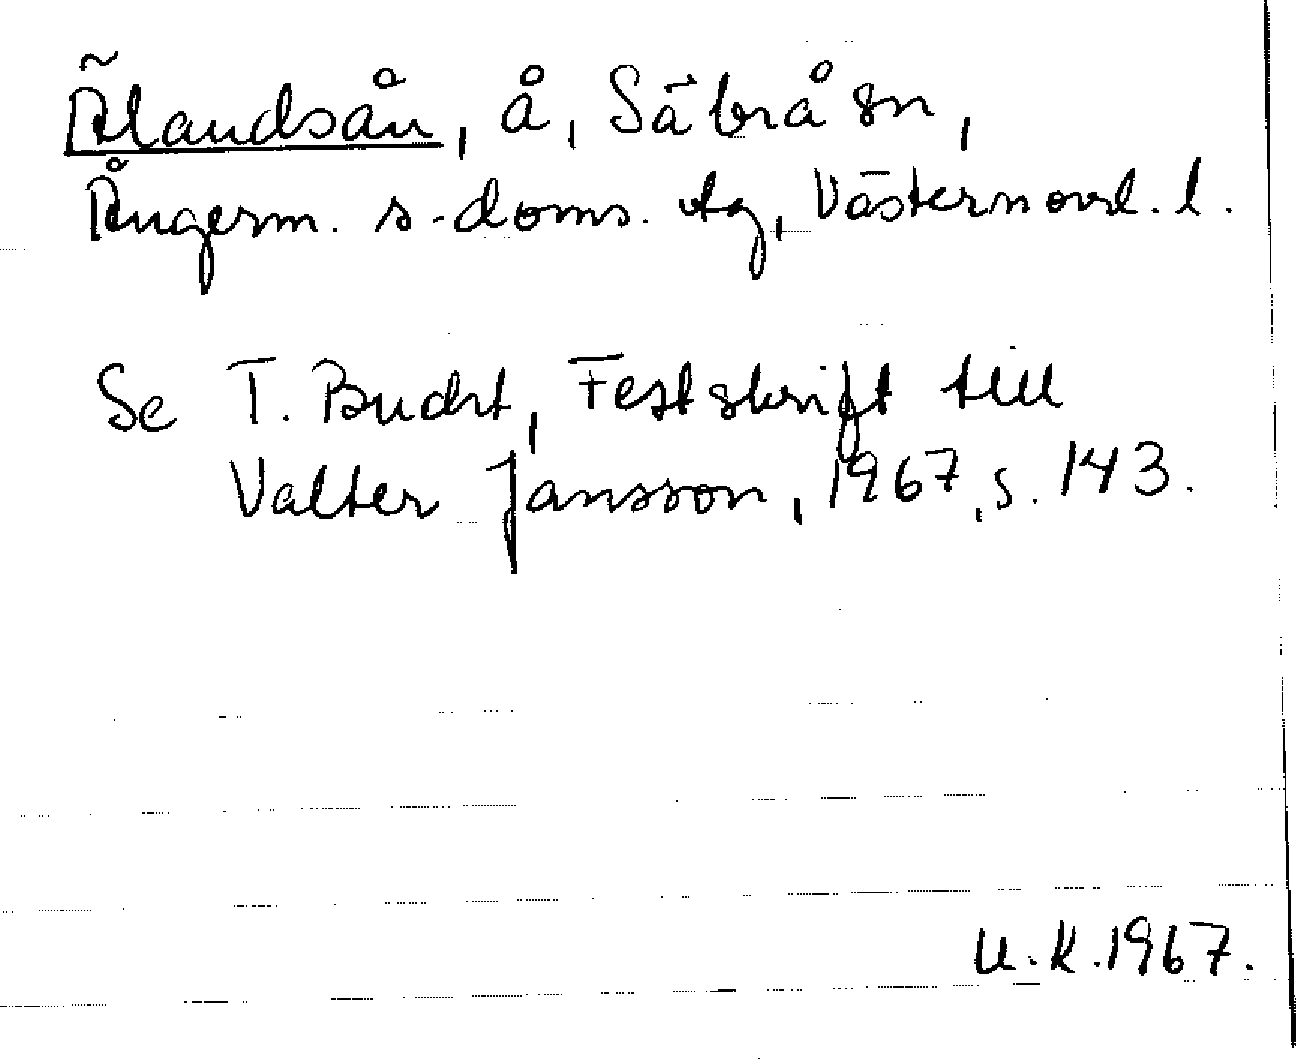 Älandsån, å, Säbrå sn,
Ångerm. s. doms. tg, Västernorrl. l.
Se T. Bucht, Festskrift till
Valter Jansson, 1967, s. 143.
U.K. 1967.